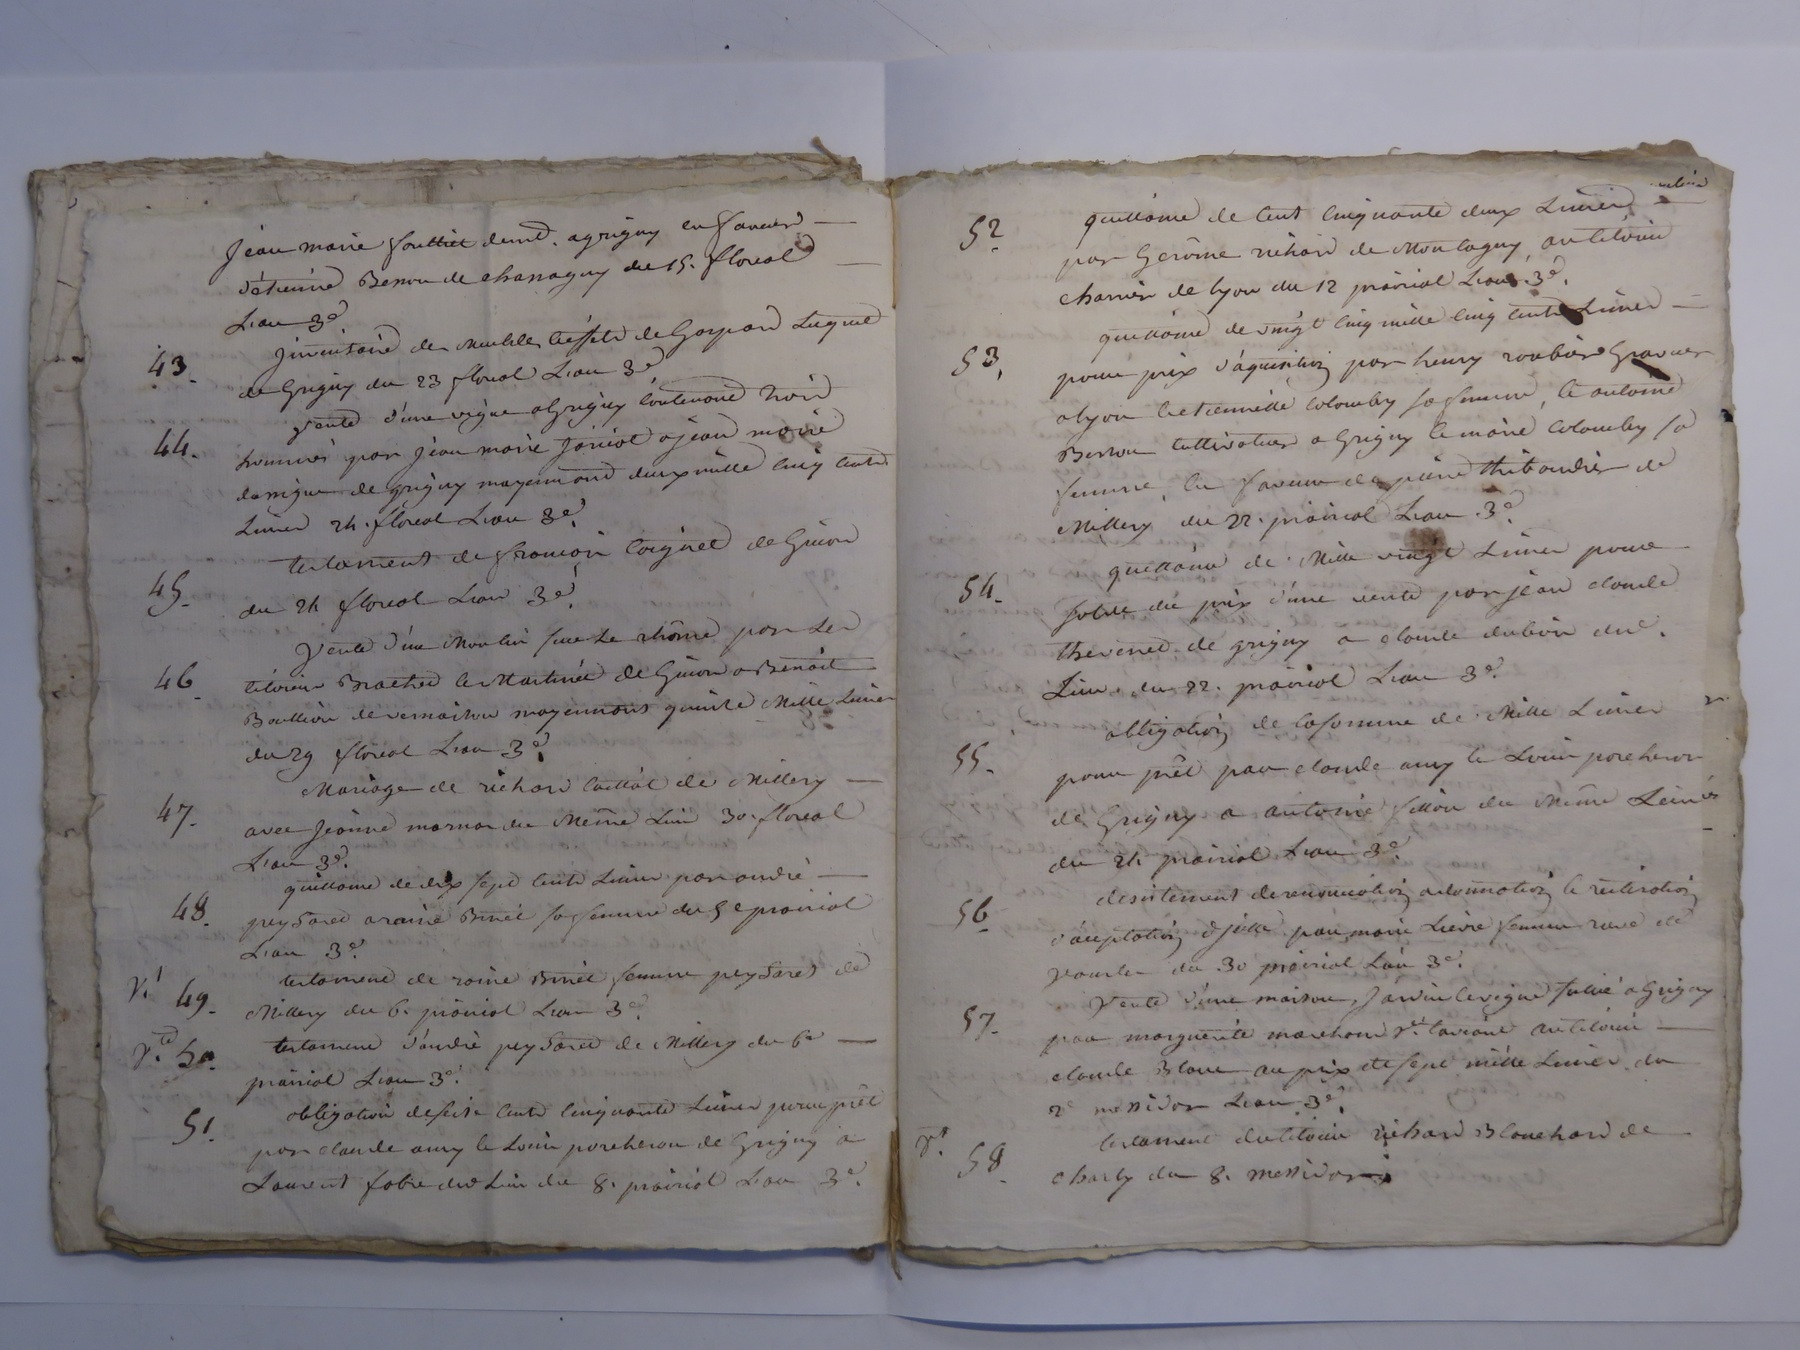 Jean marie fouttiet demt. agrigny en faveur
d'etienne Besson de chassagny du 15. floreal
L'an 3e
43. Jnventaire des Meubles & effets de Gaspard
de Grigny du 23 floreal L'an 3e
44. Vente d'une vigne a Grigny contenant trois
hommés par Jean marie Joricot a jean marie
de grigny moyennant deux mille cinq cents
Livres 24. floreal L'an 3e.
45. testament de francois de Givor
du 24 floreal L'an 3e.
46. Vente d'un Moulin sur Le rhône par Les
citoiens Brachet & Martinet de Givor a Benoit
Boullion de vernaison moyennant quinze Mille Livres
du 29 floreal L'an 3e.
47. Mariage de richard de Millery
avec Jeanne du Même Lieu 30. floreal
L'an 3e.
48. quittance de dix sept cents Livres par andré
peySaret a raine Brirèt sa femme du 5e prairial
L'an 3e.
V.t 49. testament de raine Brirèt femme peySaret de
Millery du 6. prairial L'an 3e.
V.t 50. testament d'andré peySaret de Millery du 6e
prairial L'an 3e.
51. obligation de seize cents cinquante Livres pour prêt
par claude amy le Louis porcheron de Grigny a
Laurent fabre dud Lieu du 8. prairial L'an 3e.
52. quittance de cent cinquante deux Livres
par Gerôme richard de Montagny au citoien
charrier de lyon du 12 prairial L'an 3e.
53. quittance de vingt cinq mille cinq cents Livres
pour prix d'aquisition par henry roubier Graveur
a lyon & etiennette colomby sa femme, & antoine
Besson cultivateur a Grigny & marie colomby sa
femme, en faveur de pierre thibaudier de
Millery du 22. prairial L'an 3e.
54. quittance de Mille vingt Livres pour
solde du prix d'une vente par jean claude
thevenet de grigny a claude dubois dud.
Lieu. du 22. prairial L'an 3e.
55. obligation de la somme de Mille Livres
pour prêt par claude amy & Louis porcheron
de Grigny a antoine fillion du Même Lieu
du 24 prairial L'an 3e.
56. desistement de renonciation a donnation & reiteration
d'acceptation d'jcelle par marie Lievre femme rave de
vourles du 30 prairial L'an 3e.
57. Vente d'une maison, Jardin & vigne situé a Grigny
par marguerite marchand ve. au citoien
claude Blanc au prix de sept mille Livres du
2e messidor L'an 3e.
V.t 58. testament du citoien richard Blanchard de
charly du 8. messidor